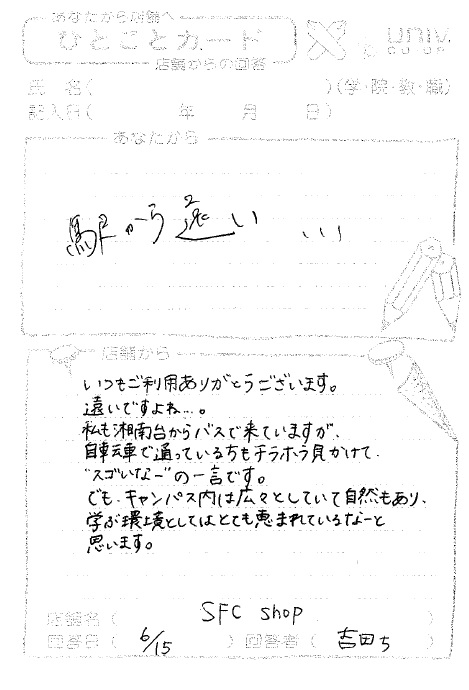 あなたから店舗へ
ひとことカード
店舗からの回答
UNIV.
CO-OP
氏 名( )(学・院・教・職)
記入日( 年 月 日)
あなたから
駅から遠い ...
店舗から
いつもご利用ありがとうございます。
遠いですよね...。
私も湘南台からバスで来ていますが、
自転車で通っている方もチラホラ見かけて、
"スゴいなー"の一言です。
でも、キャンパス内は広々としていて自然もあり、
学ぶ環境としてはとても恵まれているなーと
思います。
店舗名( SFC shop )
回答日( 6/15 ) 回答者( 吉田ち )